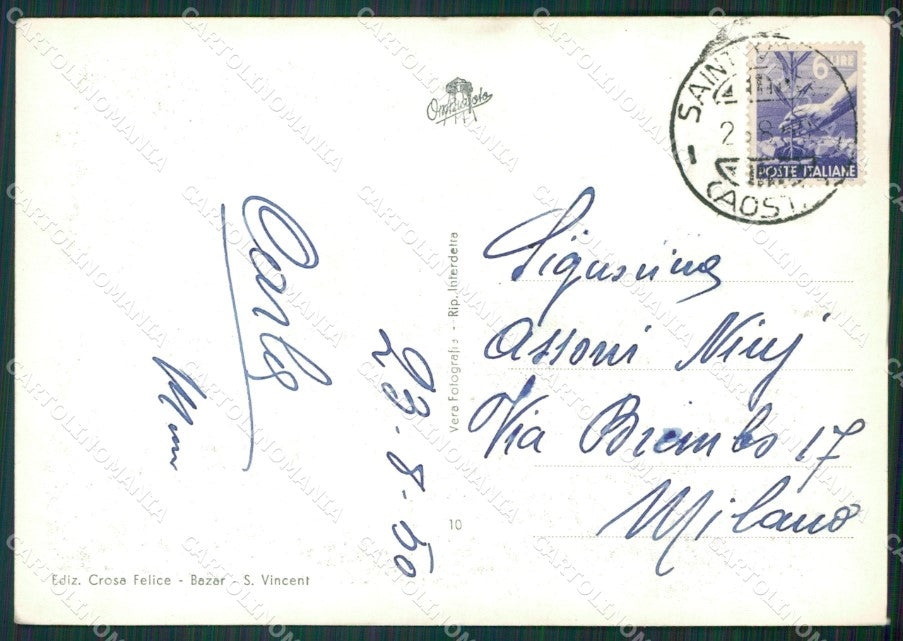 SAINT
(AOST
6 LIRE
POSTE ITALIANE
Carlo
23-8-50
Vera Fotografia - Rip. Interdetta
10
Signorina
Assoni Ninj
Via Brembo 17
Milano
Ediz. Crosa Felice - Bazar - S. Vincent
CARTOLINOMANIA